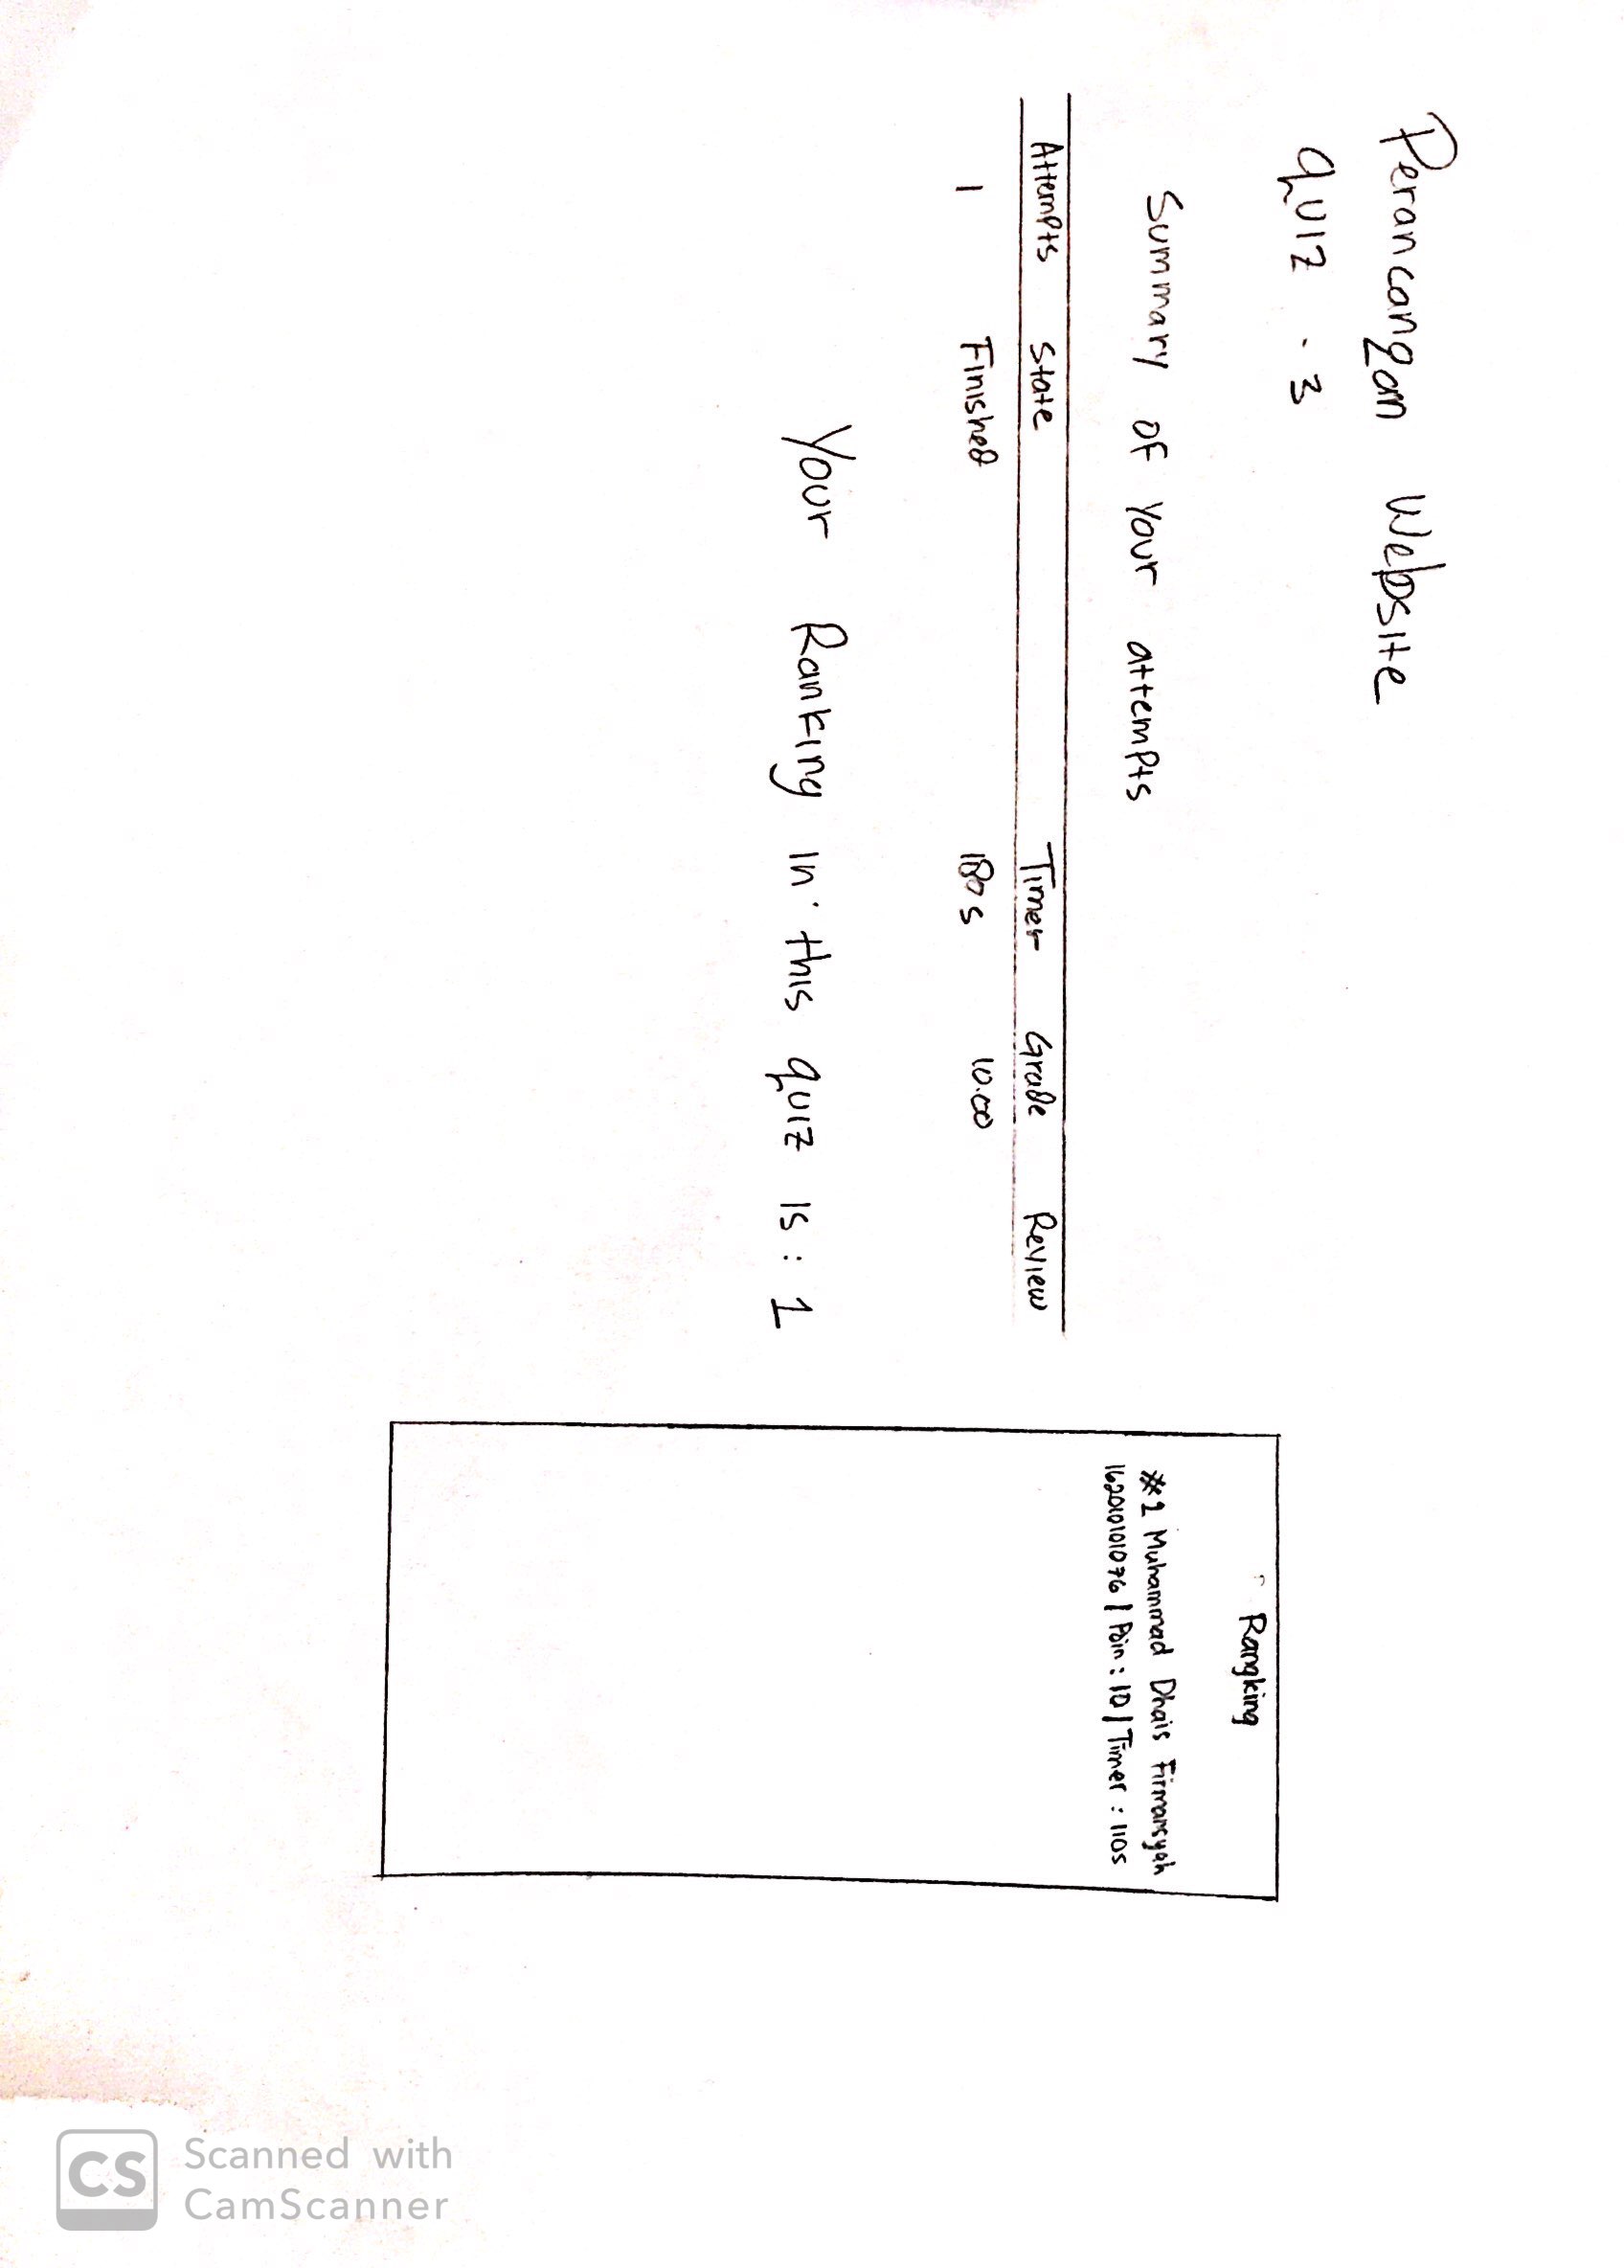 Perancangan Website
quiz . 3
Summary of Your attempts
Attempts State Timer Grade Review
1 Finished 180 s 10.00
Your Ranking in this quiz is : 1
Rangking
#1 Muhammad Dhais Firmansyah
1620101076 | Poin : 10 | Timer : 110s
Scanned with
CamScanner
CS